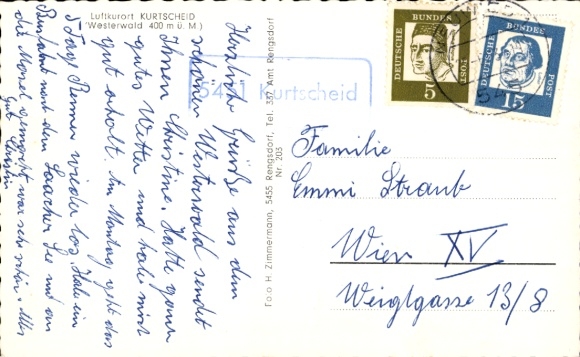 Luftkurort KURTSCHEID
(Westerwald 400 m ü. M.)
Herzliche Grüße aus dem
schönen Westerwald sendet
Ihnen Christine. Hatte ganz
gutes Wetter und habe mich
gut erholt. Am Montag geht das
Rennen wieder los. Habe eine
mit dem Laacher See und an
die Mosel gemacht war sehr schön. Alles
Foto H. Zimmermann, 5455 Rengsdorf, Tel. 357 Amt Rengsdorf
Nr. 203
5451 Kurtscheid
DEUTSCHE BUNDESPOST
5
DEUTSCHE BUNDESPOST
15
Familie
Emmi Straub
Wien XV
Weiglgasse 13/8